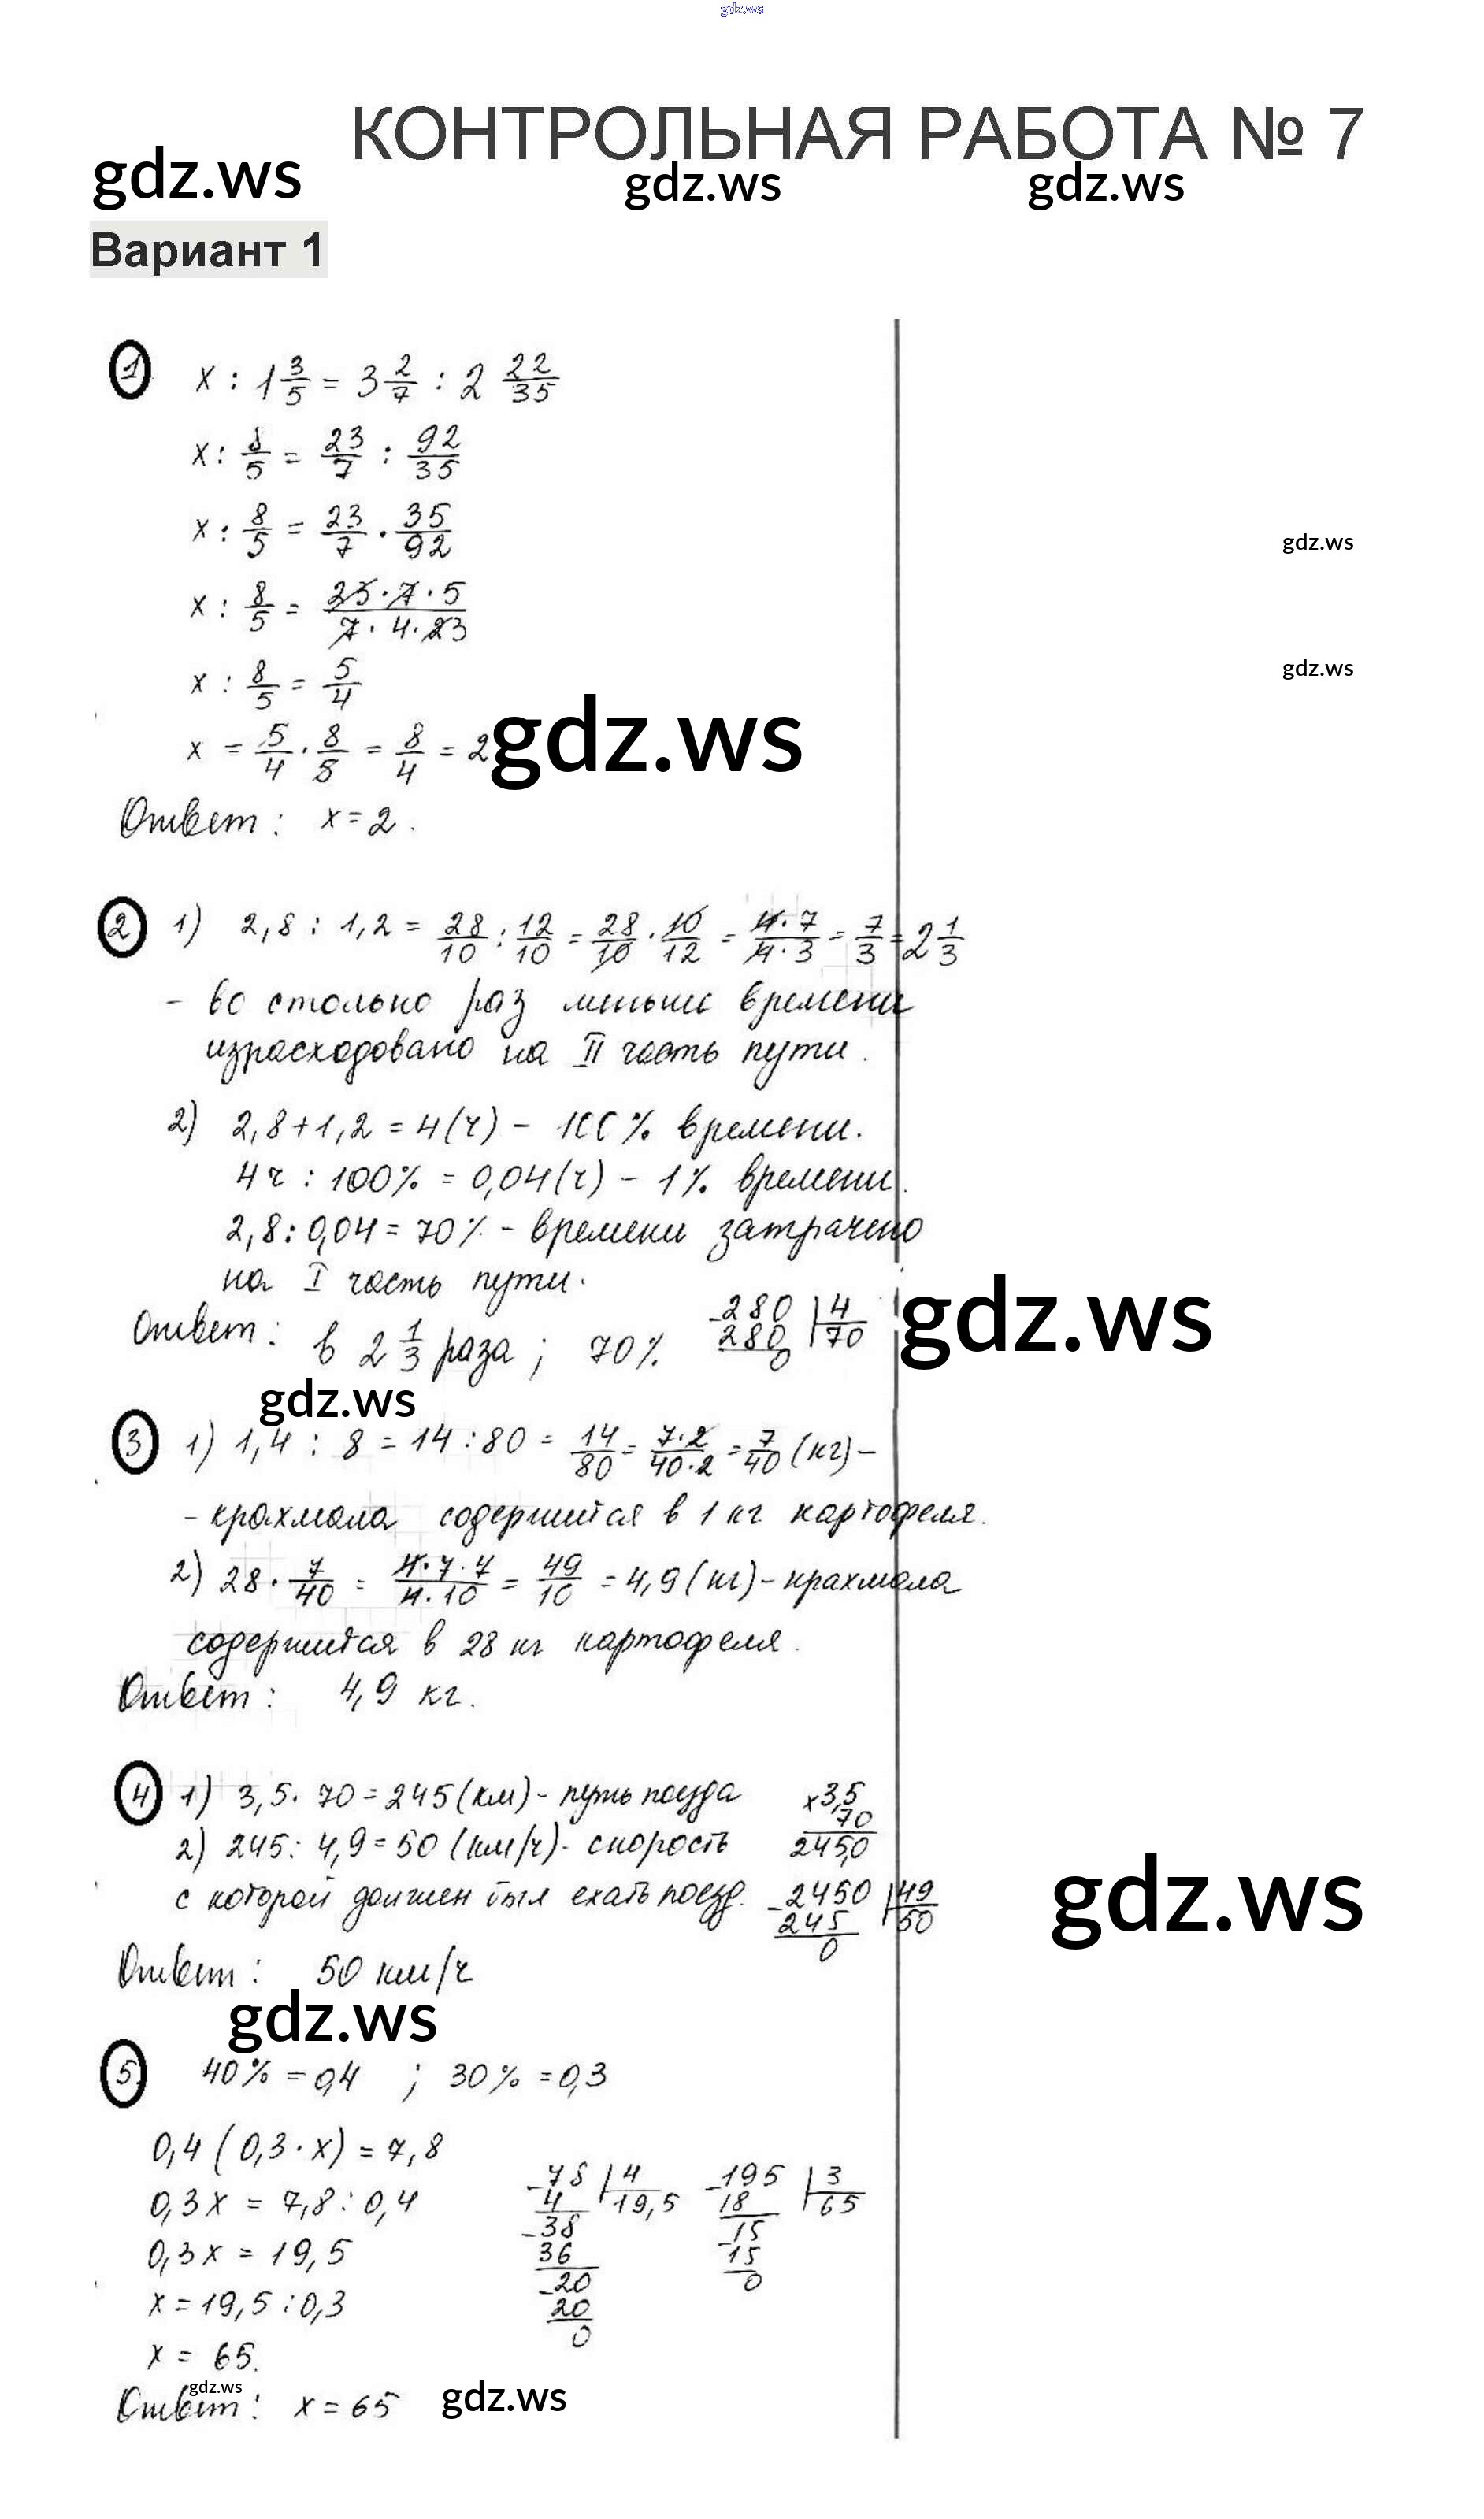 gdz.ws
КОНТРОЛЬНАЯ РАБОТА № 7
gdz.ws gdz.ws gdz.ws
Вариант 1
1 x : 1 3/5 = 3 2/7 : 2 22/35
x : 8/5 = 23/7 : 92/35
x : 8/5 = 23/7 · 35/92
gdz.ws
x : 8/5 = 23·7·5/7·4·23
x : 8/5 = 5/4
gdz.ws
x = 5/4 · 8/5 = 8/4 = 2
gdz.ws
Ответ: x=2.
2 1) 2,8 : 1,2 = 28/10 : 12/10 = 28/10 · 10/12 = 4·7/4·3 = 7/3 = 2 1/3
- во столько раз меньше времени
израсходовано на II часть пути.
2) 2,8+1,2=4(ч) - 100% времени.
4ч : 100% = 0,04(ч) - 1% времени.
2,8:0,04=70% - времени затрачено
на I часть пути.
Ответ: в 2 1/3 раза; 70%
-280 | 4
280 | 70
0
gdz.ws
gdz.ws
3 1) 1,4 : 8 = 14:80 = 14/80 = 7·2/40·2 = 7/40 (кг) -
- крахмала содержится в 1 кг картофеля.
2) 28 · 7/40 = 4·7·7/4·10 = 49/10 = 4,9 (кг) - крахмала
содержится в 28 кг картофеля.
Ответ: 4,9 кг.
4 1) 3,5·70=245(км) - путь поезда
2) 245:4,9=50 (км/ч)- скорость
с которой должен был ехать поезд.
x3,5
70
245,0
-2450 | 49
245 | 50
0
gdz.ws
Ответ: 50 км/ч
gdz.ws
5 40% = 0,4 ; 30% = 0,3
0,4 (0,3·x) = 7,8
0,3x = 7,8:0,4
0,3x = 19,5
x=19,5:0,3
x = 65.
-78 | 4
4 | 19,5
-38
36
-20
20
0
-195 | 3
18 | 65
-15
15
0
gdz.ws
Ответ: x=65
gdz.ws